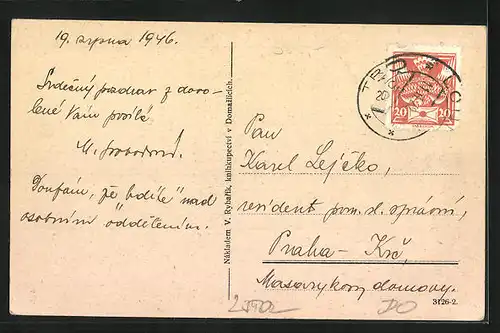 19. srpna 1946.
Srdečný pozdrav z dovo-
lené Vám posílá
M. Svobodová.
Doufám, že „bdíte“ nad
osobním oddělením.
Nákladem V. Rybařík, knihkupectví v Domažlicích.
Pan
Karel Lejčko,
resident pom. sl. správní,
Praha – Krč,
Masarykovy domovy.
20 20
3126-2.